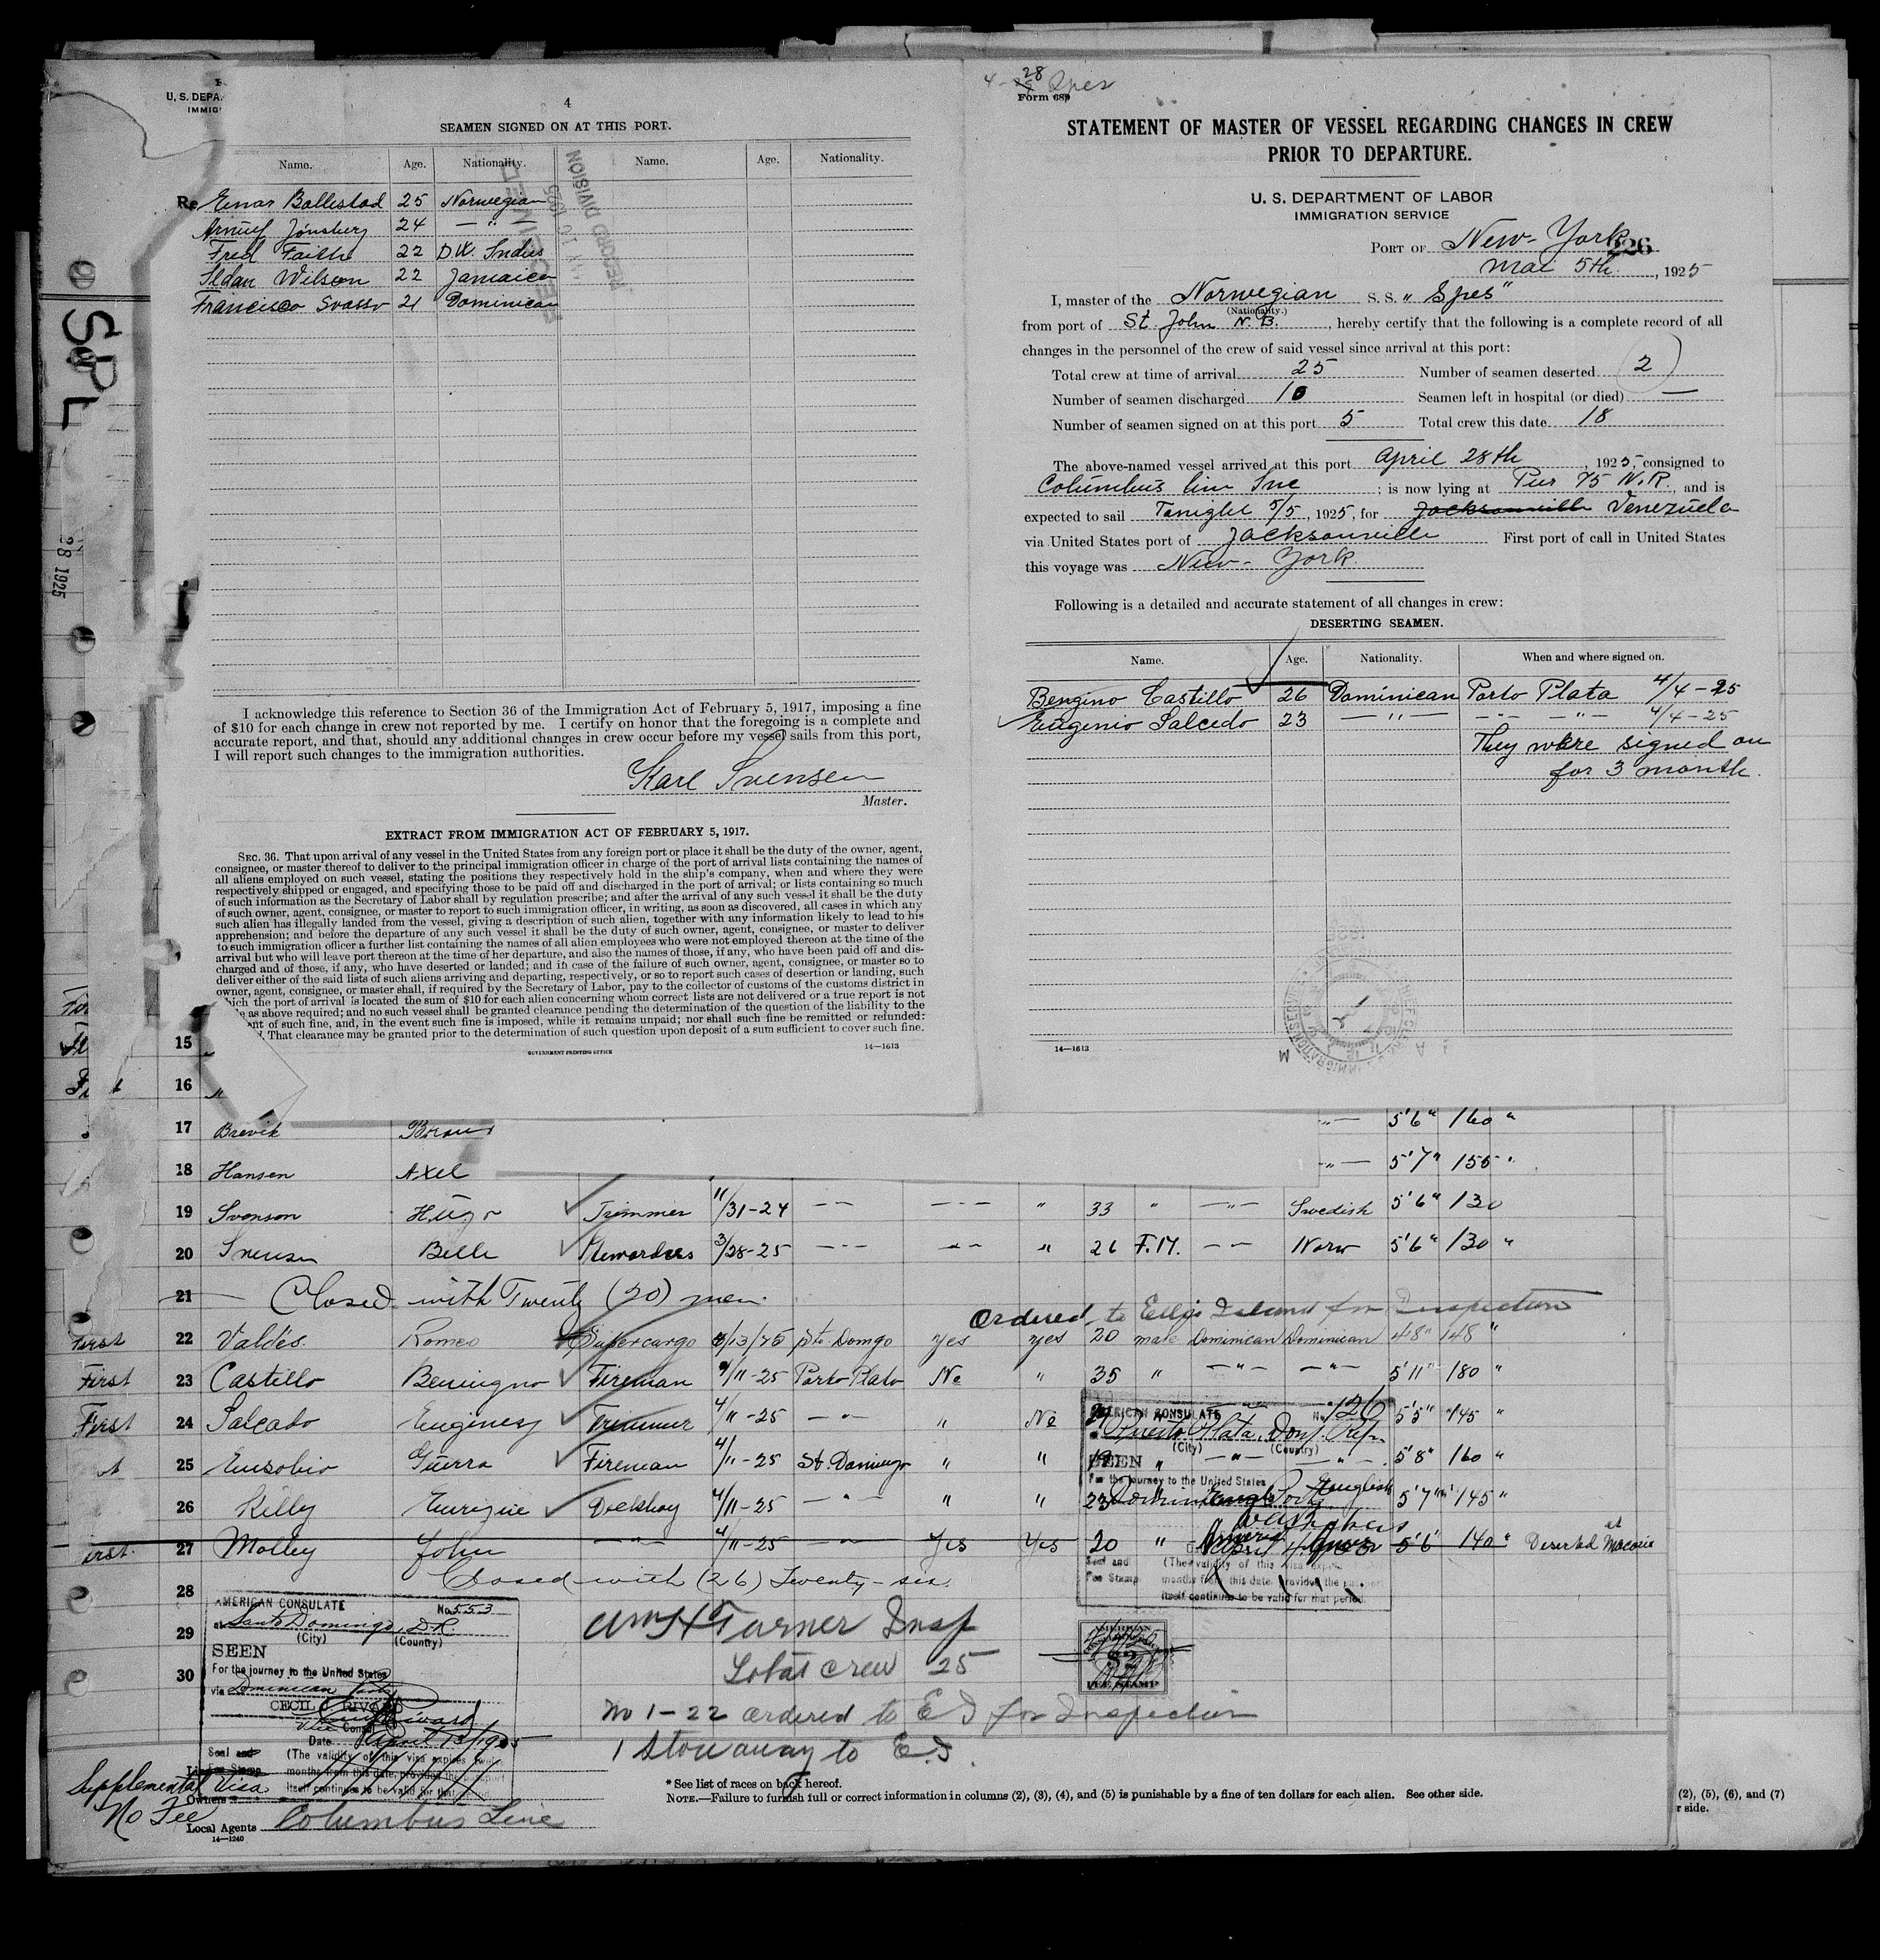 4
SEAMEN SIGNED ON AT THIS PORT.
Name. Age. Nationality. Name. Age. Nationality.
Einar Bollestad 25 Norwegian
24 — " —
Fred 22 D.W. Indies
Wilson 22 Jamaica
Francisco 21 Dominican
RECORD DIVISION
RECEIVED
I acknowledge this reference to Section 36 of the Immigration Act of February 5, 1917, imposing a fine
of $10 for each change in crew not reported by me. I certify on honor that the foregoing is a complete and
accurate report, and that, should any additional changes in crew occur before my vessel sails from this port,
I will report such changes to the immigration authorities.
Karl Svensen
Master.
EXTRACT FROM IMMIGRATION ACT OF FEBRUARY 5, 1917.
SEC. 36. That upon arrival of any vessel in the United States from any foreign port or place it shall be the duty of the owner, agent,
consignee, or master thereof to deliver to the principal immigration officer in charge of the port of arrival lists containing the names of
all aliens employed on such vessel, stating the positions they respectively hold in the ship's company, when and where they were
respectively shipped or engaged, and specifying those to be paid off and discharged in the port of arrival; or lists containing so much
of such information as the Secretary of Labor shall by regulation prescribe; and after the arrival of any such vessel it shall be the duty
of such owner, agent, consignee, or master to report to such immigration officer, in writing, as soon as discovered, all cases in which any
such alien has illegally landed from the vessel, giving a description of such alien, together with any information likely to lead to his
apprehension; and before the departure of any such vessel it shall be the duty of such owner, agent, consignee, or master to deliver
to such immigration officer a further list containing the names of all alien employees who were not employed thereon at the time of the
arrival but who will leave port thereon at the time of her departure, and also the names of those, if any, who have been paid off and dis-
charged and of those, if any, who have deserted or landed; and in case of the failure of such owner, agent, consignee, or master so to
deliver either of the said lists of such aliens arriving and departing, respectively, or so to report such cases of desertion or landing, such
owner, agent, consignee, or master shall, if required by the Secretary of Labor, pay to the collector of customs of the customs district in
which the port of arrival is located the sum of $10 for each alien concerning whom correct lists are not delivered or a true report is not
as above required; and no such vessel shall be granted clearance pending the determination of the question of the liability to the
of such fine, and, in the event such fine is imposed, while it remains unpaid; nor shall such fine be remitted or refunded:
That clearance may be granted prior to the determination of such question upon deposit of a sum sufficient to cover such fine.
GOVERNMENT PRINTING OFFICE 14—1613
4-28 Spes
Form 689
STATEMENT OF MASTER OF VESSEL REGARDING CHANGES IN CREW
PRIOR TO DEPARTURE.
U. S. DEPARTMENT OF LABOR
IMMIGRATION SERVICE
PORT OF New-York 226
Mai 5th, 1925
I, master of the Norwegian S. S. "Spes"
(Nationality.)
from port of St. John N.B., hereby certify that the following is a complete record of all
changes in the personnel of the crew of said vessel since arrival at this port:
Total crew at time of arrival 25 Number of seamen deserted 2
Number of seamen discharged 10 Seamen left in hospital (or died) —
Number of seamen signed on at this port 5 Total crew this date 18
The above-named vessel arrived at this port April 28th, 1925, consigned to
Columbus line Inc; is now lying at Pier 75 N.R., and is
expected to sail Tonight 5/5, 1925, for Jacksonville Venezuela
via United States port of Jacksonville First port of call in United States
this voyage was New-York
Following is a detailed and accurate statement of all changes in crew:
DESERTING SEAMEN.
Name. Age. Nationality. When and where signed on.
Bengino Castillo 26 Dominican Porto Plata 4/4-25
Eugenio Salcedo 23 — " — — " — — " — 4/4-25
They where signed on
for 3 month.
14—1613
SPL
28 1925
15
16 "
17 Brevik 5'6" 160 "
18 Hansen Axel 5'7" 155 "
19 Svenson Hugo Trimmer 11/31-24 " 33 " Swedish 5'6" 130
20 Svensen Belle Stewardess 3/28-25 " 26 F.M. Norw 5'6" 130 "
21 Closed with Twenty (20) men.
Ordered to Ellis Island for Inspection
First 22 Valdes. Romeo Supercargo Pto Domgo Yes Yes 20 male Dominican Dominican 4'8" 148 "
First 23 Castillo Benigno Fireman 4/11-25 Porto Plato No " 35 " — " — — " — 5'11" 180 "
First 24 Salcado Trimmer 4/11-25 — " — " No 5'5" 145 "
25 Eusobio Guerra Fireman 4/11-25 St. Domingo " " 19 " — " — — " — 5'8" 160 "
26 Killy 4/11-25 — " — " " 23 English 5'7" 145 "
27 Molley John — " — 4/11-25 — " — Yes Yes 20 " 5'6" 140 " Deserted at Macoris
28 Closed with (26) Twenty-six.
29
30
AMERICAN CONSULATE No 126
Puerto Plata, Dom. Rep.
(City) (Country)
SEEN
For the journey to the United States
Seal and
Fee Stamp
(The validity of this visa expires
months from this date, provided the passport
itself continues to be valid for that period.
AMERICAN CONSULATE No. 553
at Santo Domingo, D.R.
(City) (Country)
SEEN
For the journey to the United States
via Dominican Ports
Vice Consul
Date April 13/1925
Seal and
Fee Stamp
(The validity of this visa expires
months from this date, provided the passport
itself continues to be valid for that
$2
FEE STAMP
Wm H Turner Insp
Total crew 25
No 1-22 ordered to E I for Inspection
1 Stowaway to E.I.
Supplemental Visa
No Fee
Owners
Local Agents Columbus Line
14—1240
* See list of races on back hereof.
NOTE.—Failure to furnish full or correct information in columns (2), (3), (4), and (5) is punishable by a fine of ten dollars for each alien. See other side.
(2), (5), (6), and (7)
r side.